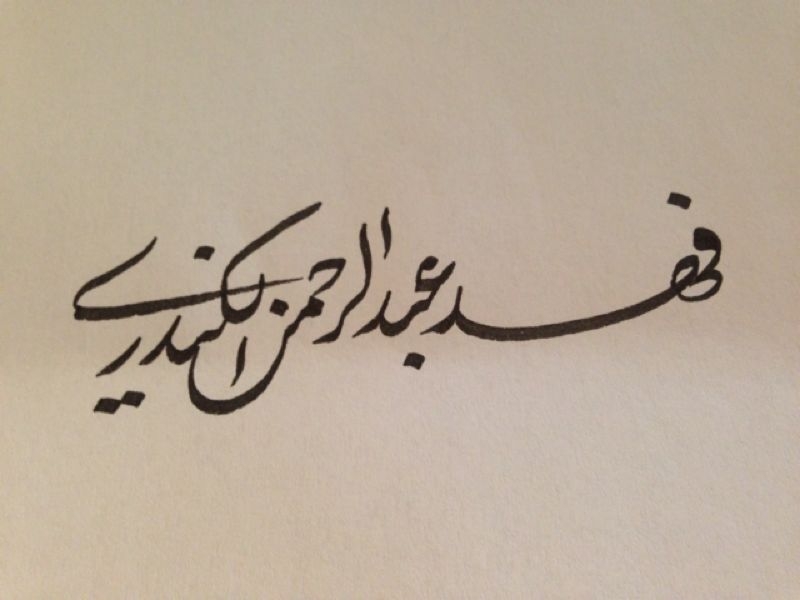 فهد عبدالرحمن الكندري